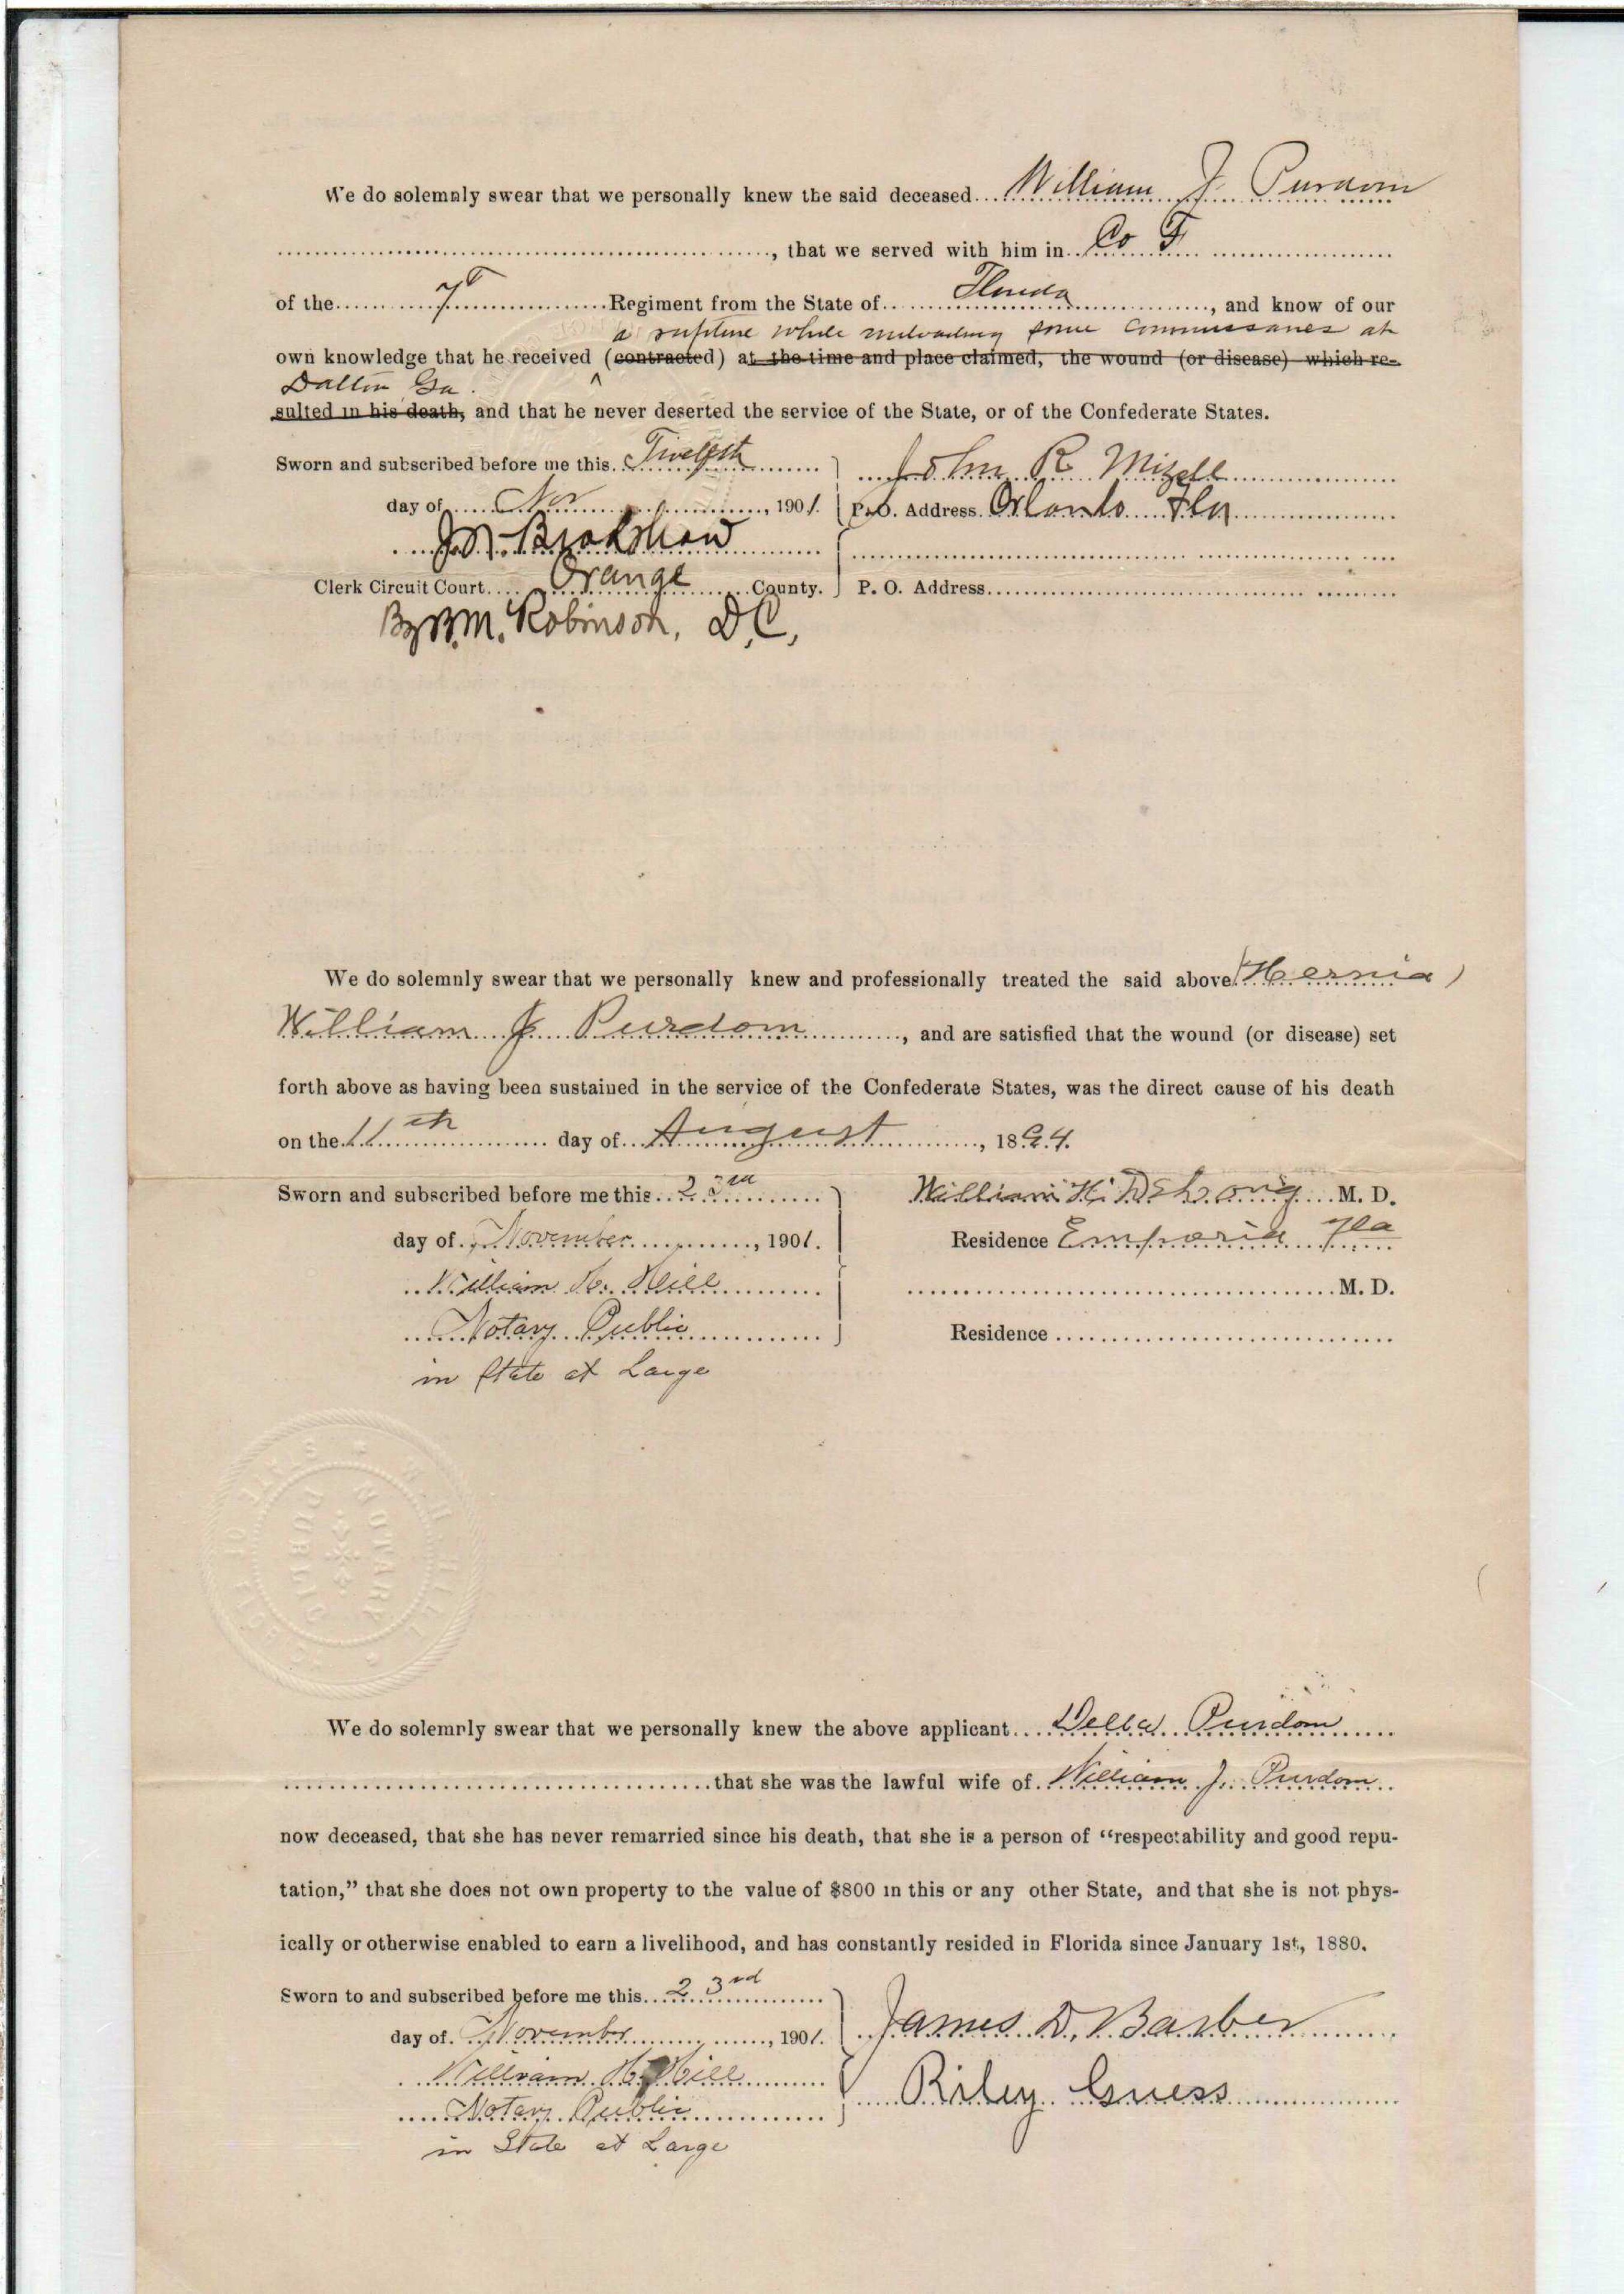 We do solemnly swear that we personally knew the said deceased William J. Purdom
, that we served with him in Co F
of the 7 Regiment from the State of Florida, and know of our
a rupture while unloading some commissaries at
own knowledge that he received (contracted) at the time and place claimed, the wound (or disease) which re-
Dalton Ga.
sulted in his death, and that he never deserted the service of the State, or of the Confederate States.
Sworn and subscribed before me this Twelfth
John R Mizell
day of Nov, 1901.
P. O. Address Orlando Fla
J. M. Bradshaw
Clerk Circuit Court Orange County.
P. O. Address
By B. M. Robinson, D.C,
We do solemnly swear that we personally knew and professionally treated the said above (Hernia)
William J Purdom, and are satisfied that the wound (or disease) set
forth above as having been sustained in the service of the Confederate States, was the direct cause of his death
on the 11th day of August, 1894.
Sworn and subscribed before me this 23rd
William H. M. D.
day of November, 1901.
Residence Emporia Fla
William H. Hill
M. D.
Notary Public
Residence
in State at Large
W. H. HILL
STATE OF FLORIDA
NOTARY PUBLIC
We do solemnly swear that we personally knew the above applicant Della Purdom
that she was the lawful wife of William J. Purdom
now deceased, that she has never remarried since his death, that she is a person of “respectability and good repu-
tation,” that she does not own property to the value of $800 in this or any other State, and that she is not phys-
ically or otherwise enabled to earn a livelihood, and has constantly resided in Florida since January 1st, 1880.
Sworn to and subscribed before me this 23rd
James D. Barber
day of November, 1901.
William H. Hill
Riley Guess
Notary Public
in State at Large